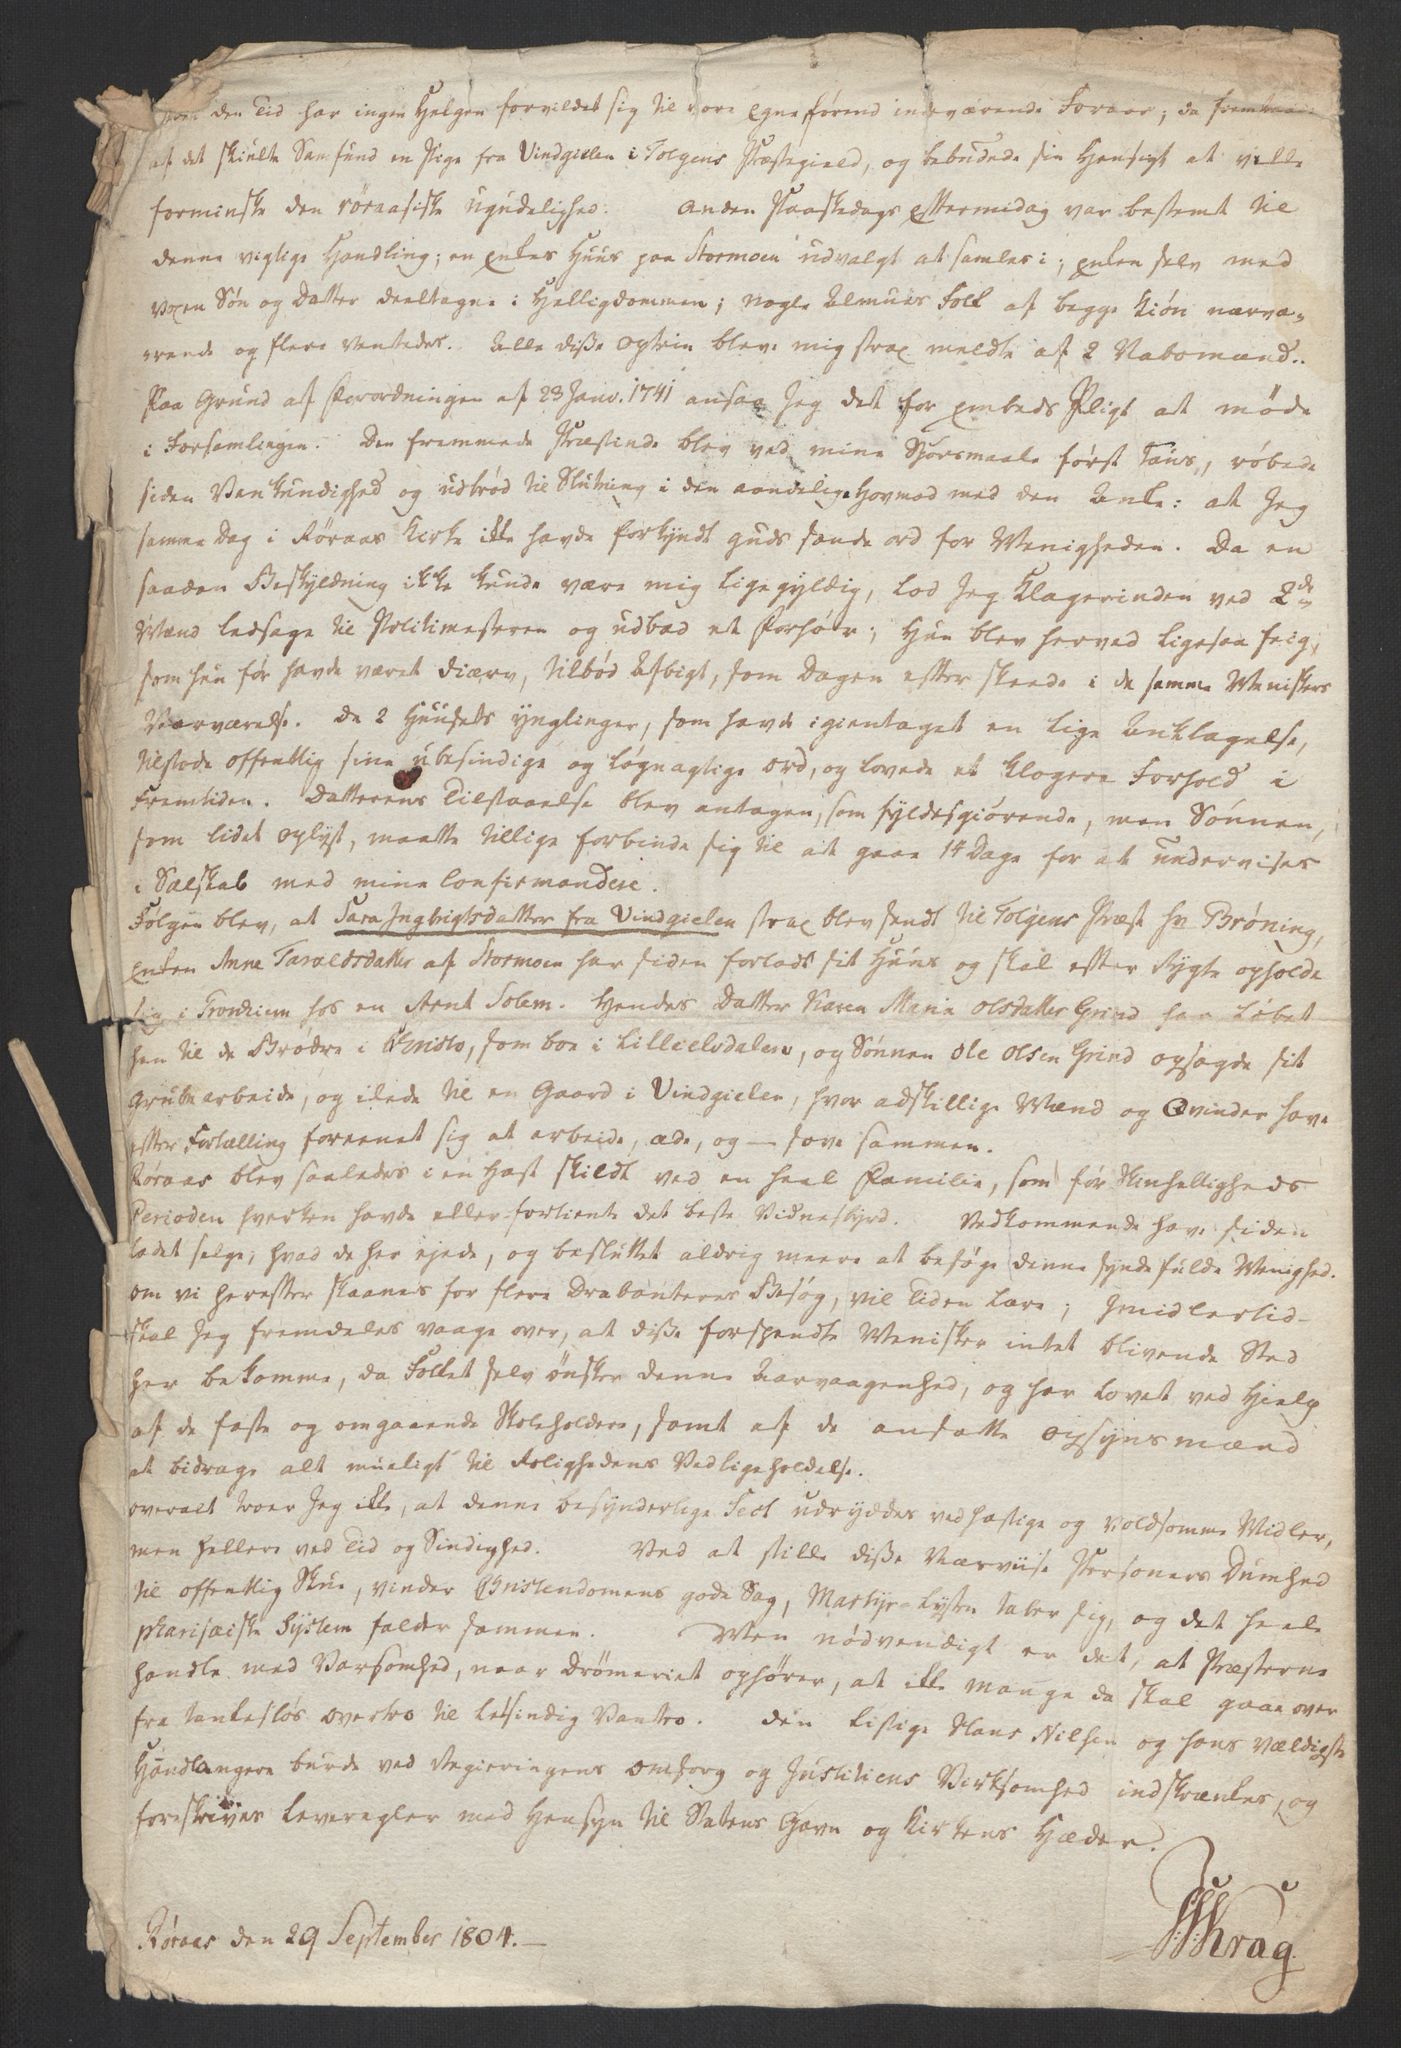 den Tid har ingen Helgen forvildet sig til vore Egne førend indeværende Foraar; da fremkom
af det skiulte Samfund en Pige fra Vindgielen i Tolgens Præstegield, og bebudede sin Hensigt at ville
forminske den röraasiske Ugudelighed. Anden Paaskedags Eftermidag var bestemt til
denne vigtige Handling; en Enkes Huus paa Stormoen udvalgt at samles i; Enken selv med
voxen Søn og Datter deeltagne i Helligdommen; nogle Almues Folk af begge Kiøn nærvæ-
rende og flere ventedes. Alle disse Optrin bleve mig strax meldte af 2 Nabomænd.
Paa Grund af Forordningen af 23 Janv. 1741 ansaae Jeg det for Embeds Pligt at møde
i Forsamlingen. Den fremmede Præstinde blev ved mine Spörsmaale først Taus, röbede
siden Vankundighed og udbrød til Slutning i den aandelige Hovmod med den Anke: at Jeg
samme Dag i Røraas Kirke ikke havde forkyndt Guds sande ord for Menigheden. Da en
saadan Beskyldning ikke kunde være mig ligegyldig, lod Jeg Klagerinden ved 2de
Mænd ledsage til Politimesteren og udbad et Forhør; Hun blev herved ligesaa feig,
som hun før havde været diærv, tilbød Afbigt, som Dagen efter skeede i de samme Meniskers
Nærværelse. De 2 Huusets ynglinger, som havde igientaget en lige Anklagelse,
tilstode offentlig sine ubesindige og løgnagtige ord, og lovede et klogere Forhold i
Fremtiden. Datterens Tilstaaelse blev antagen, som fyldesgiørende, men Sønnen,
som lidet oplyst, maatte tillige forbinde sig til at gaae 14 Dage for at undervises
i Sælskab med mine Confirmandere.
Følgen blev, at Sara Ingbrigtsdatter fra Vindgielen strax blev sendt til Tolgens Præst Hr Brøning,
Enken Anne Taraldsdatter af Stormoen har siden forladt sit Huus og skal efter Rygte opholde
sig i Trondhiem hos en Arnt Solem. Hendes Datter Karen Maria Olsdatter Grind har løbet
hen til de Brødre i Christo, som boe i Lilleelvdalen, og Sønnen Ole Olsen Grind opsagde sit
Grubearbeide, og ilede til en Gaard i Vindgielen, hvor adskillige Mænd og Qvinder have
efter Fortælling foreenet sig at arbeide, æde, og — sove sammen.
Röraas blev saaledes i en Hast skildt ved en heel Familie, som før Skinhelligheds
Perioden hverken havde eller fortiente det beste Vidnesbyrd. Vedkommende have siden
ladet selge, hvad de her ejede, og besluttet aldrig meere at besøge denne syndefulde Menighed.
Om vi herefter skaanes for flere Drabanteres Besøg, vil Tiden lære; Imidlertid
skal Jeg fremdeles vaage over, at disse forspendte Menisker intet blivende Sted
her bekomme, da Folket selv ønsker denne Aarvaagenhed, og har lovet ved Hielp
af de faste og omgaaende Skoleholdere, samt af de ansatte Opsynsmænd
at bidrage alt mueligt til Rolighedens Vedligeholdelse.
Overalt troer Jeg ikke, at denne besynderlige Sect udryddes ved hastige og voldsomme Midler,
men hellere ved Tid og Sindighed. Ved at stille disse Næsviise Personers Dumhed
til offentlig Skue, vinder Christendomens gode Sag, Martyr-Lysten taber sig, og det heele
pharisæiske System falder sammen. Men nødvendigt er det, at Præsterne
handle med Varsomhed, naar Drömeriet ophører, at ikke mange da skal gaae over
fra tankesløs Overtro til letsindig Vantro. Den listige Hans Nilsen og hans vældigste
Handlangere burde ved Regieringens Omsorg og Justitiens Virksomhed indskrænkes, og
foreskrives Leveregler med Hensyn til Statens Gavn og Kirkens Hæder.
Röraas den 29 September 1804. —
Krag